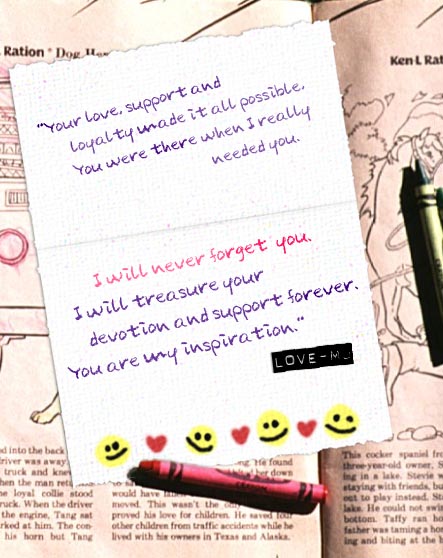 Ration * Dog
Ken-L
"Your love, support and
loyalty made it all possible.
You were there when I really
needed you.
I will never forget you.
I will treasure your
devotion and support forever.
You are my inspiration."
LOVE-M.
into the back
was away
truck and
the man
loyal collie stood
truck. When the driver
the engine, Tang sat
at him. The con-
his horn but Tang
He found
her down
would have
moved. This wasn't the
proved his love for children. He saved four
other children from traffic accidents while he
lived with his owners in Texas and Alaska.
This cocker spaniel
three-year-old owner,
ing in a lake. Stevie
staying with friends,
out to play instead.
lake. He could not
bottom. Taffy ran
father was taming a
ing and biting at the